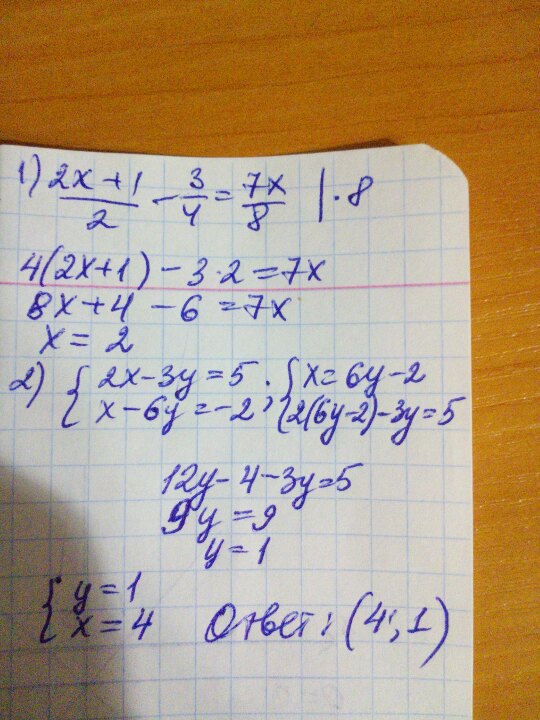 1) (2x+1)/2 - 3/4 = 7x/8 | · 8
4(2x+1) - 3·2 = 7x
8x+4 - 6 = 7x
x = 2
2) { 2x-3y=5 ; { x=6y-2
{ x-6y=-2 ; { 2(6y-2)-3y=5
12y-4-3y=5
9y=9
y=1
{ y=1
{ x=4 Ответ: (4;1)